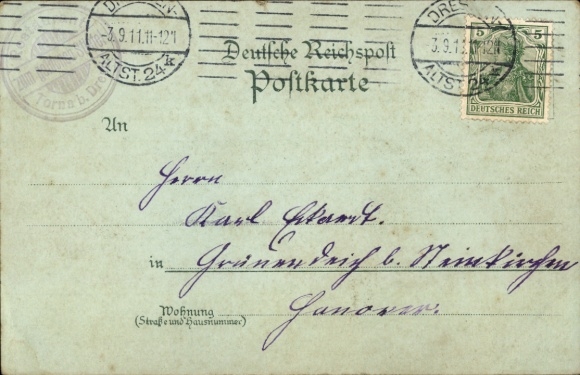 DRESDEN-
-3.9.11.11-12V
ALTST. 24 k
DRESDEN-
3.9.11.11-12V
ALTST. 24
Torna b. Dre
Deutsche Reichspost
Postkarte
5 5
DEUTSCHES REICH
An
Herrn
Karl Eckardt.
in Grünendeich b. Steinkirchen
Wohnung
(Straße und Hausnummer)
Hanover.